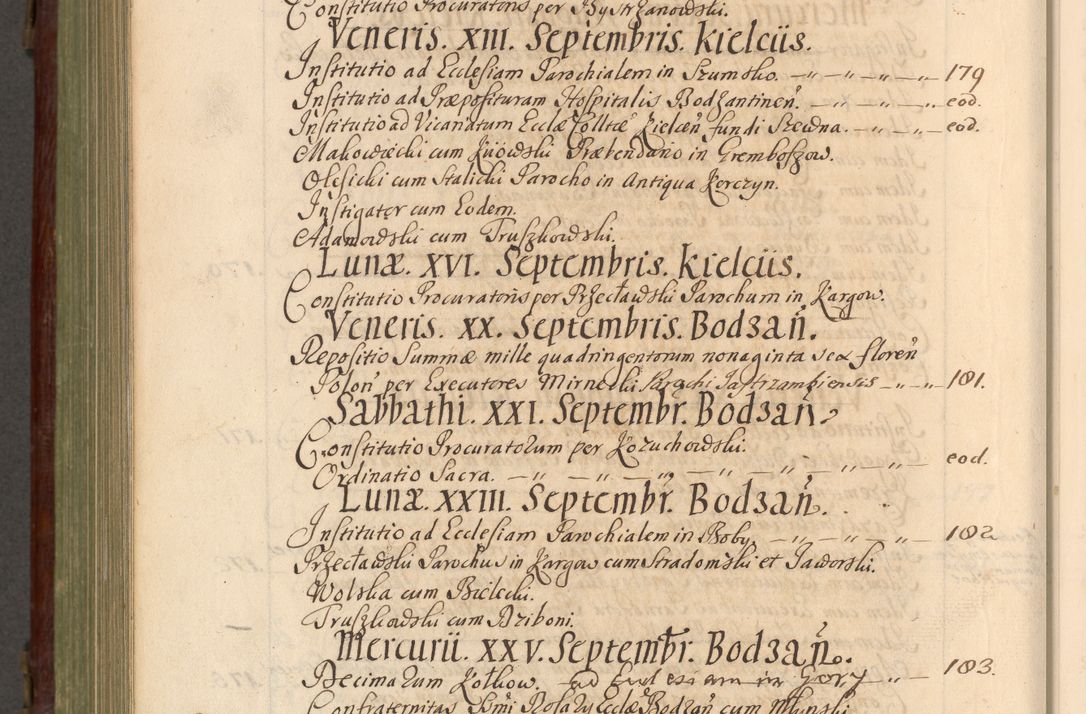 Constitutio Procuratoris per Bystrzanowski.
Veneris. XIII. Septembris. Kielciis.
Institutio ad Ecclesiam Parochialem in Szumsko. — " — " — " — " — 179
Institutio ad Præposituram Hospitalis Bodzantinen̄. — " — " — ". eod.
Institutio ad Vicariatum Ecclæ Colltæ Kielcen̄ fundi Szewna. — " — " — eod.
Makowiecki cum Kiiowski Præbendario in Gremboszow.
Olesicki cum Stalicki Parocho in Antiqua Korczyn.
Instigator cum Eodem.
Adamowski cum Truszkowski.
Lunæ. XVI. Septembris. Kielciis.
Constitutio Procuratoris per Przecławski Parochum in Kargow.
Veneris. XX. Septembris. Bodzan̄.
Repositio Summæ mille quadringentorum nonaginta sex floren̄
Polon̄ per Executores Mirnecki Parochi Jastrzambiensis — " — " — 181.
Sabbathi. XXI. Septembr̄. Bodzan̄.
Constitutio Procuratorum per Kozuchowski.
Ordinatio Sacra. — " — " — " — " — " — " — eod.
Lunæ. XXIII. Septembr̄. Bodzan̄.
Institutio ad Ecclesiam Parochialem in Boby. — " — " — " — 182
Przecławski Parochus in Kargow cum Stradomski et Jaworski.
Wolska cum Bielecki.
Truszkowski cum Dziboni.
Mercurii. XXV. Septembr̄. Bodzan̄.
Decimarum Kotkow. ad Ecclesiam in Gory — " — 183.
Confraternitas Ssmi Rosary Ecclæ Bodzan̄ cum